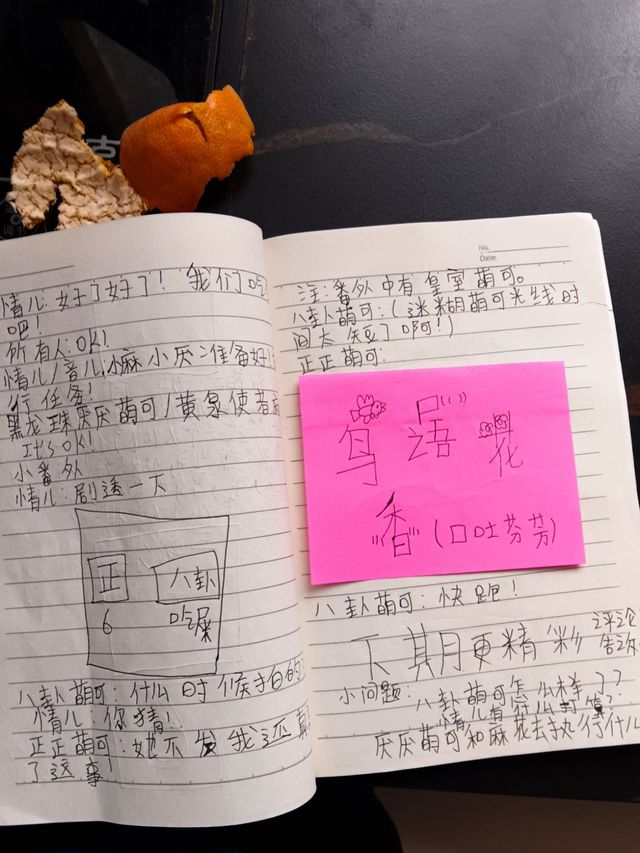 情儿:好了好了!我们吃
吧!
所有人:OK!
情儿/音儿:麻小厌准备好!
行任务!
黑龙珠厌厌萌可/黄泉使者
It's OK!
小番外
情儿:剧透一下
正
八卦
6
吃屎
八卦萌可:什么时候拍的
情儿:你猜!
正正萌可:她不发我还真
了这事!
No.
Date:
注:番外中有皇室萌可。
八卦萌可:(迷糊萌可光线时
间太短了啊!)
正正萌可:
鸟语花
"香"(口吐芬芳)
八卦萌可:快跑!
下期更精彩
评论
告诉
小问题:八卦萌可怎么样了?
情儿有什么打算?
厌厌萌可和麻花去执行什